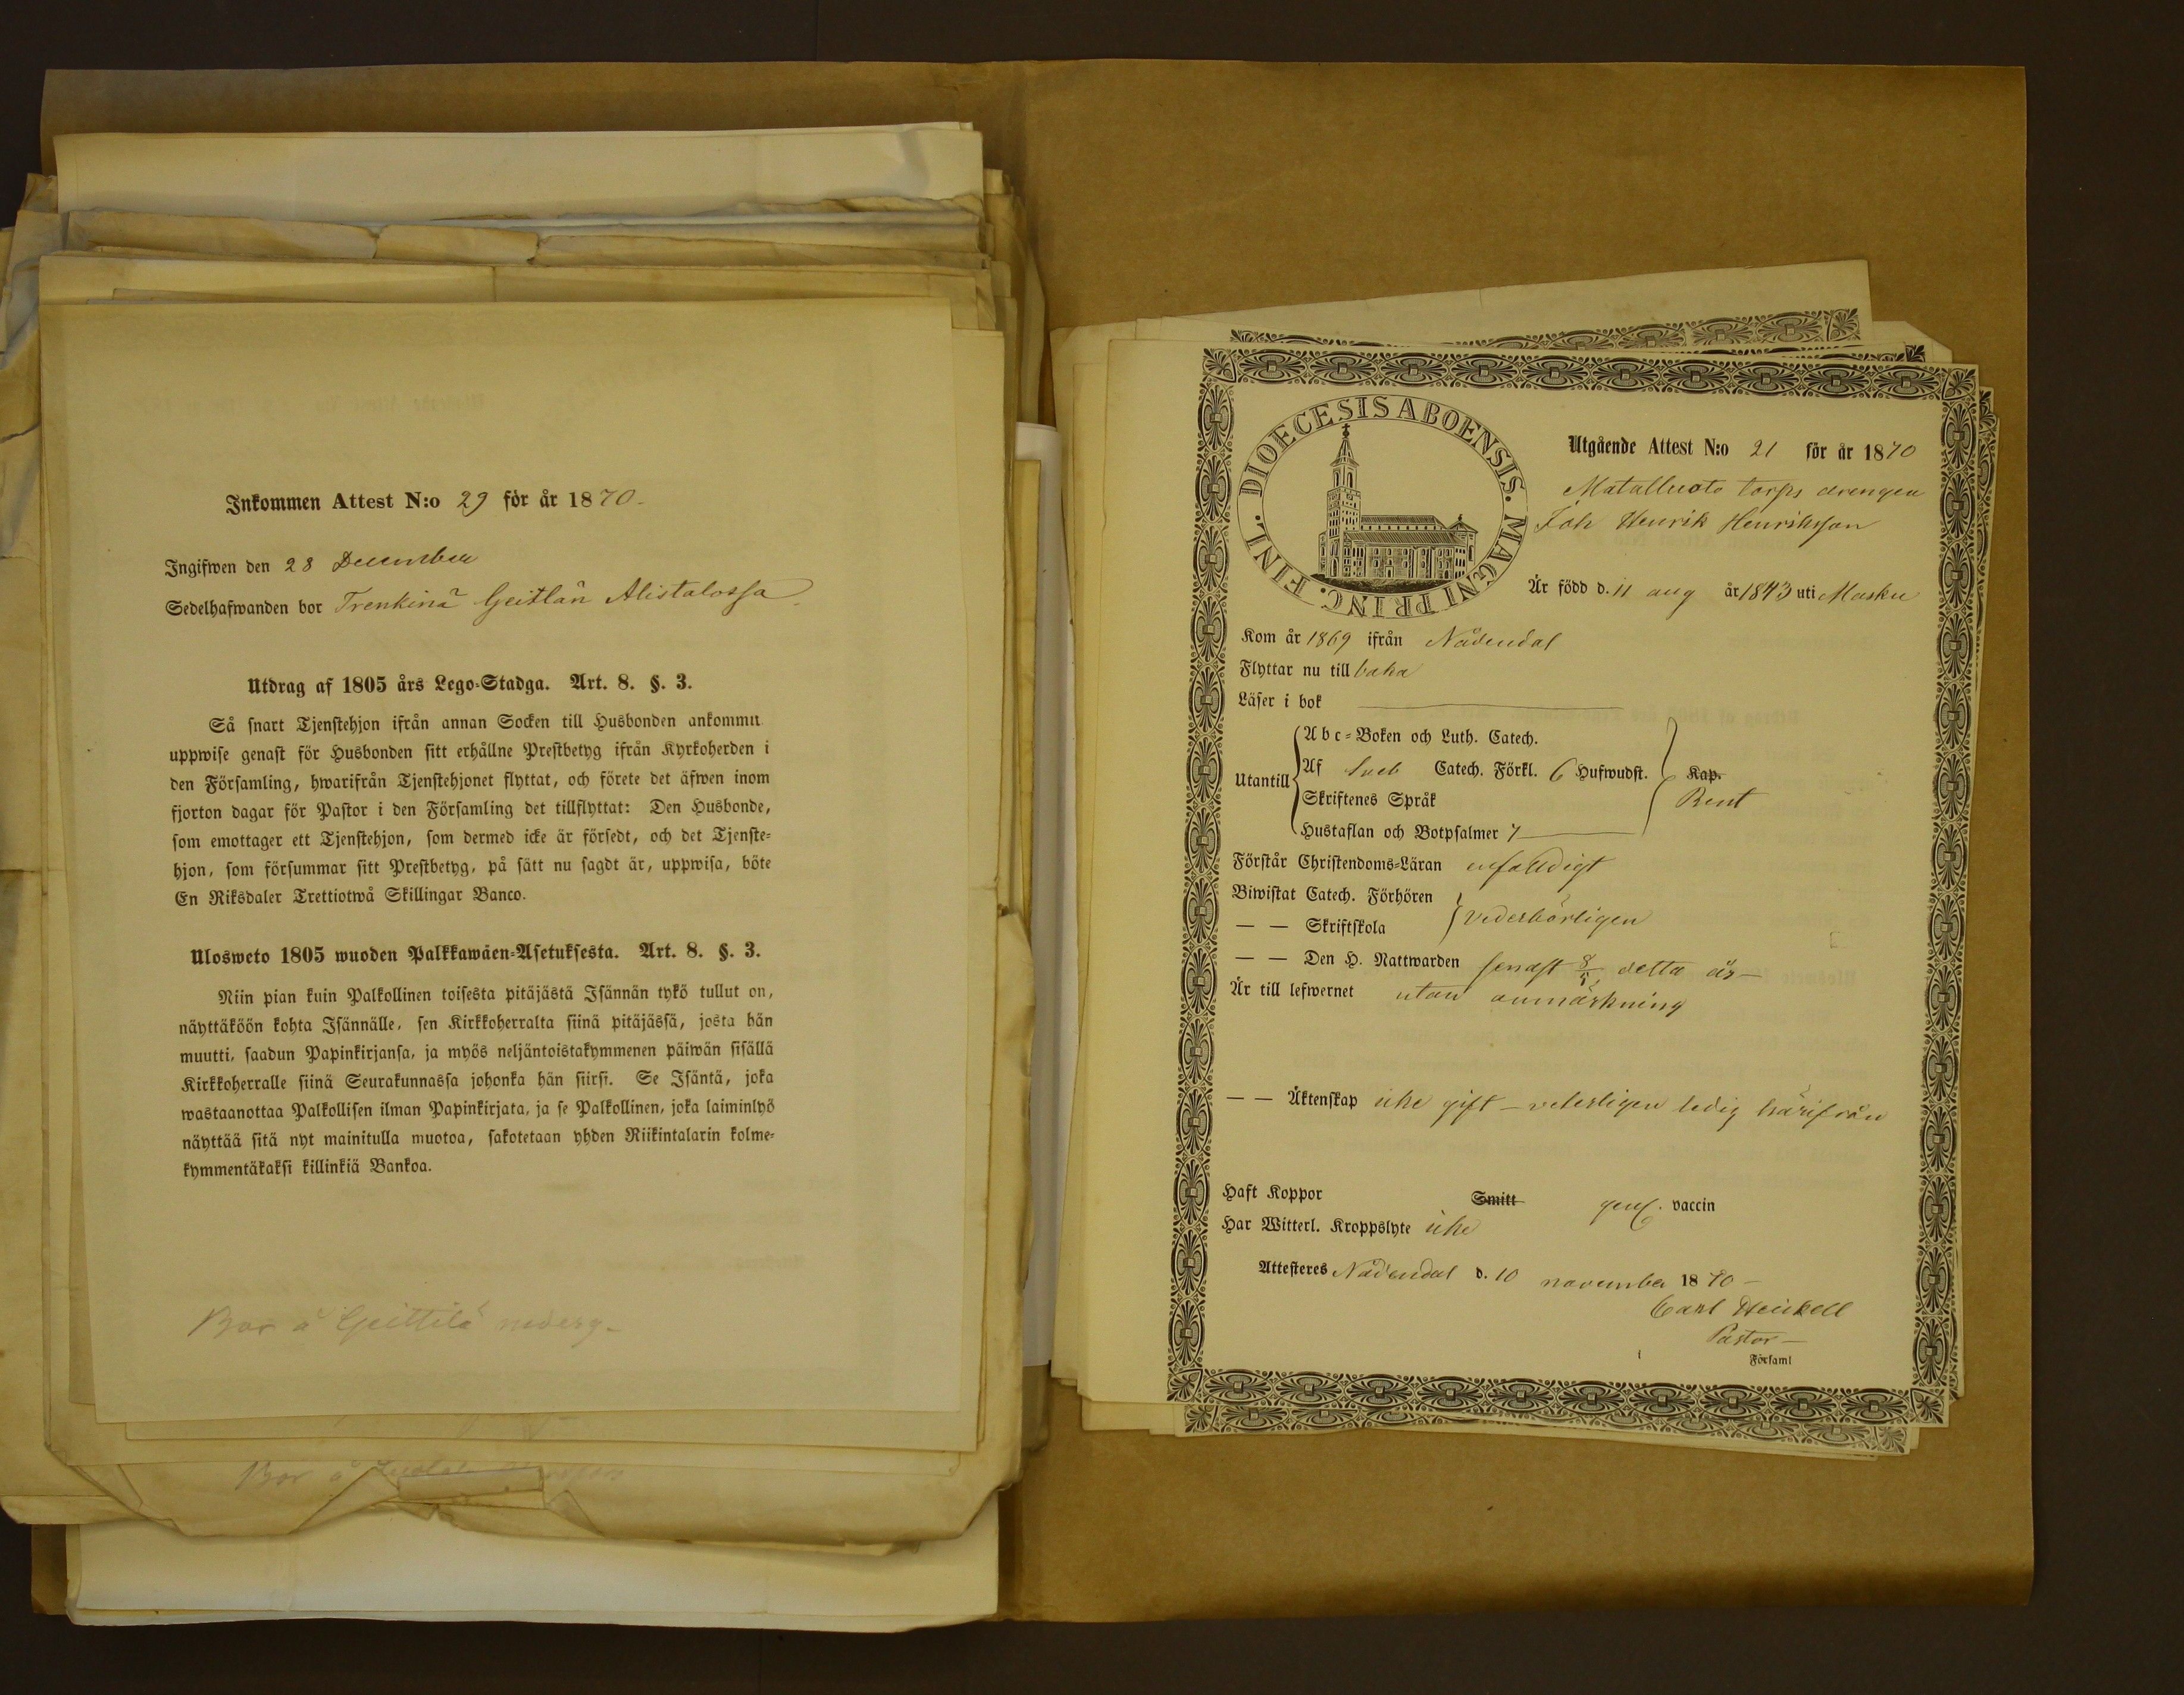 Inkommen Attest N:o 29 för år 1870.
Ingifwen den 28 December
Sedelhafwanden bor Trenkinä Geitlän Alistalossa
Utdrag af 1805 års Lego-Stadga. Art. 8. §. 3.
Så snart Tjenstehjon ifrån annan Socken till Husbonden ankommit
uppwise genast för Husbonden sitt erhållne Prestbetyg ifrån Kyrkoherden i
den Församling, hwarifrån Tjenstehjonet flyttat, och förete det äfwen inom
fjorton dagar för Pastor i den Församling det tillflyttat: Den Husbonde,
som emottager ett Tjenstehjon, som dermed icke är försedt, och det Tjenste-
hjon, som försummar sitt Prestbetyg, på sätt nu sagdt är, uppwisa, böte
En Riksdaler Trettiotwå Skillingar Banco.
Ulosweto 1805 wuoden Palkkawäen-Asetuksesta. Art. 8. §. 3.
Niin pian kuin Palkollinen toisesta pitäjästä Isännän tykö tullut on,
näyttäköön kohta Isännälle, sen Kirkkoherralta siinä pitäjässä, josta hän
muutti, saadun Papinkirjansa, ja myös neljäntoistakymmenen päiwän sisällä
Kirkkoherralle siinä Seurakunnassa johonka hän siirsi. Se Isäntä, joka
wastaanottaa Palkollisen ilman Papinkirjata, ja se Palkollinen, joka laiminlyö
näyttää sitä nyt mainitulla muotoa, sakotetaan yhden Riikintalarin kolme-
kymmentäkaksi killinkiä Bankoa.
Bor å Geittilä nederg.
Bor å
DIOECESIS ABOENSIS. MAGNI PRINC. FINL.
Utgående Attest N:o 21 för år 1870
Matalluoto torps drengen
Joh Henrik Henriksson
Är född d. 11 aug år 1843 uti Masku
Kom år 1869 ifrån Nådendal
Flyttar nu till baka
Läser i bok
Abc-Boken och Luth. Catech.
Utantill Af Sveb Catech. Förkl. 6 Hufwudst. Kap.
Skriftenes Språk Rent
Hustaflan och Botpsalmer 7
Förstår Christendoms-Läran enfaldigt
Biwistat Catech. Förhören
— — Skriftskola vederbörligen
— — Den H. Nattwarden senast 8/5 detta år
Är till lefwernet utan anmärkning
— — Äktenskap icke gift – veterligen ledig härifrån
Haft Koppor Smitt genl. vaccin
Har Witterl. Kroppslyte icke
Attesteres Nådendal d. 10 november 1870
Carl Heikell
Pastor
i Församl